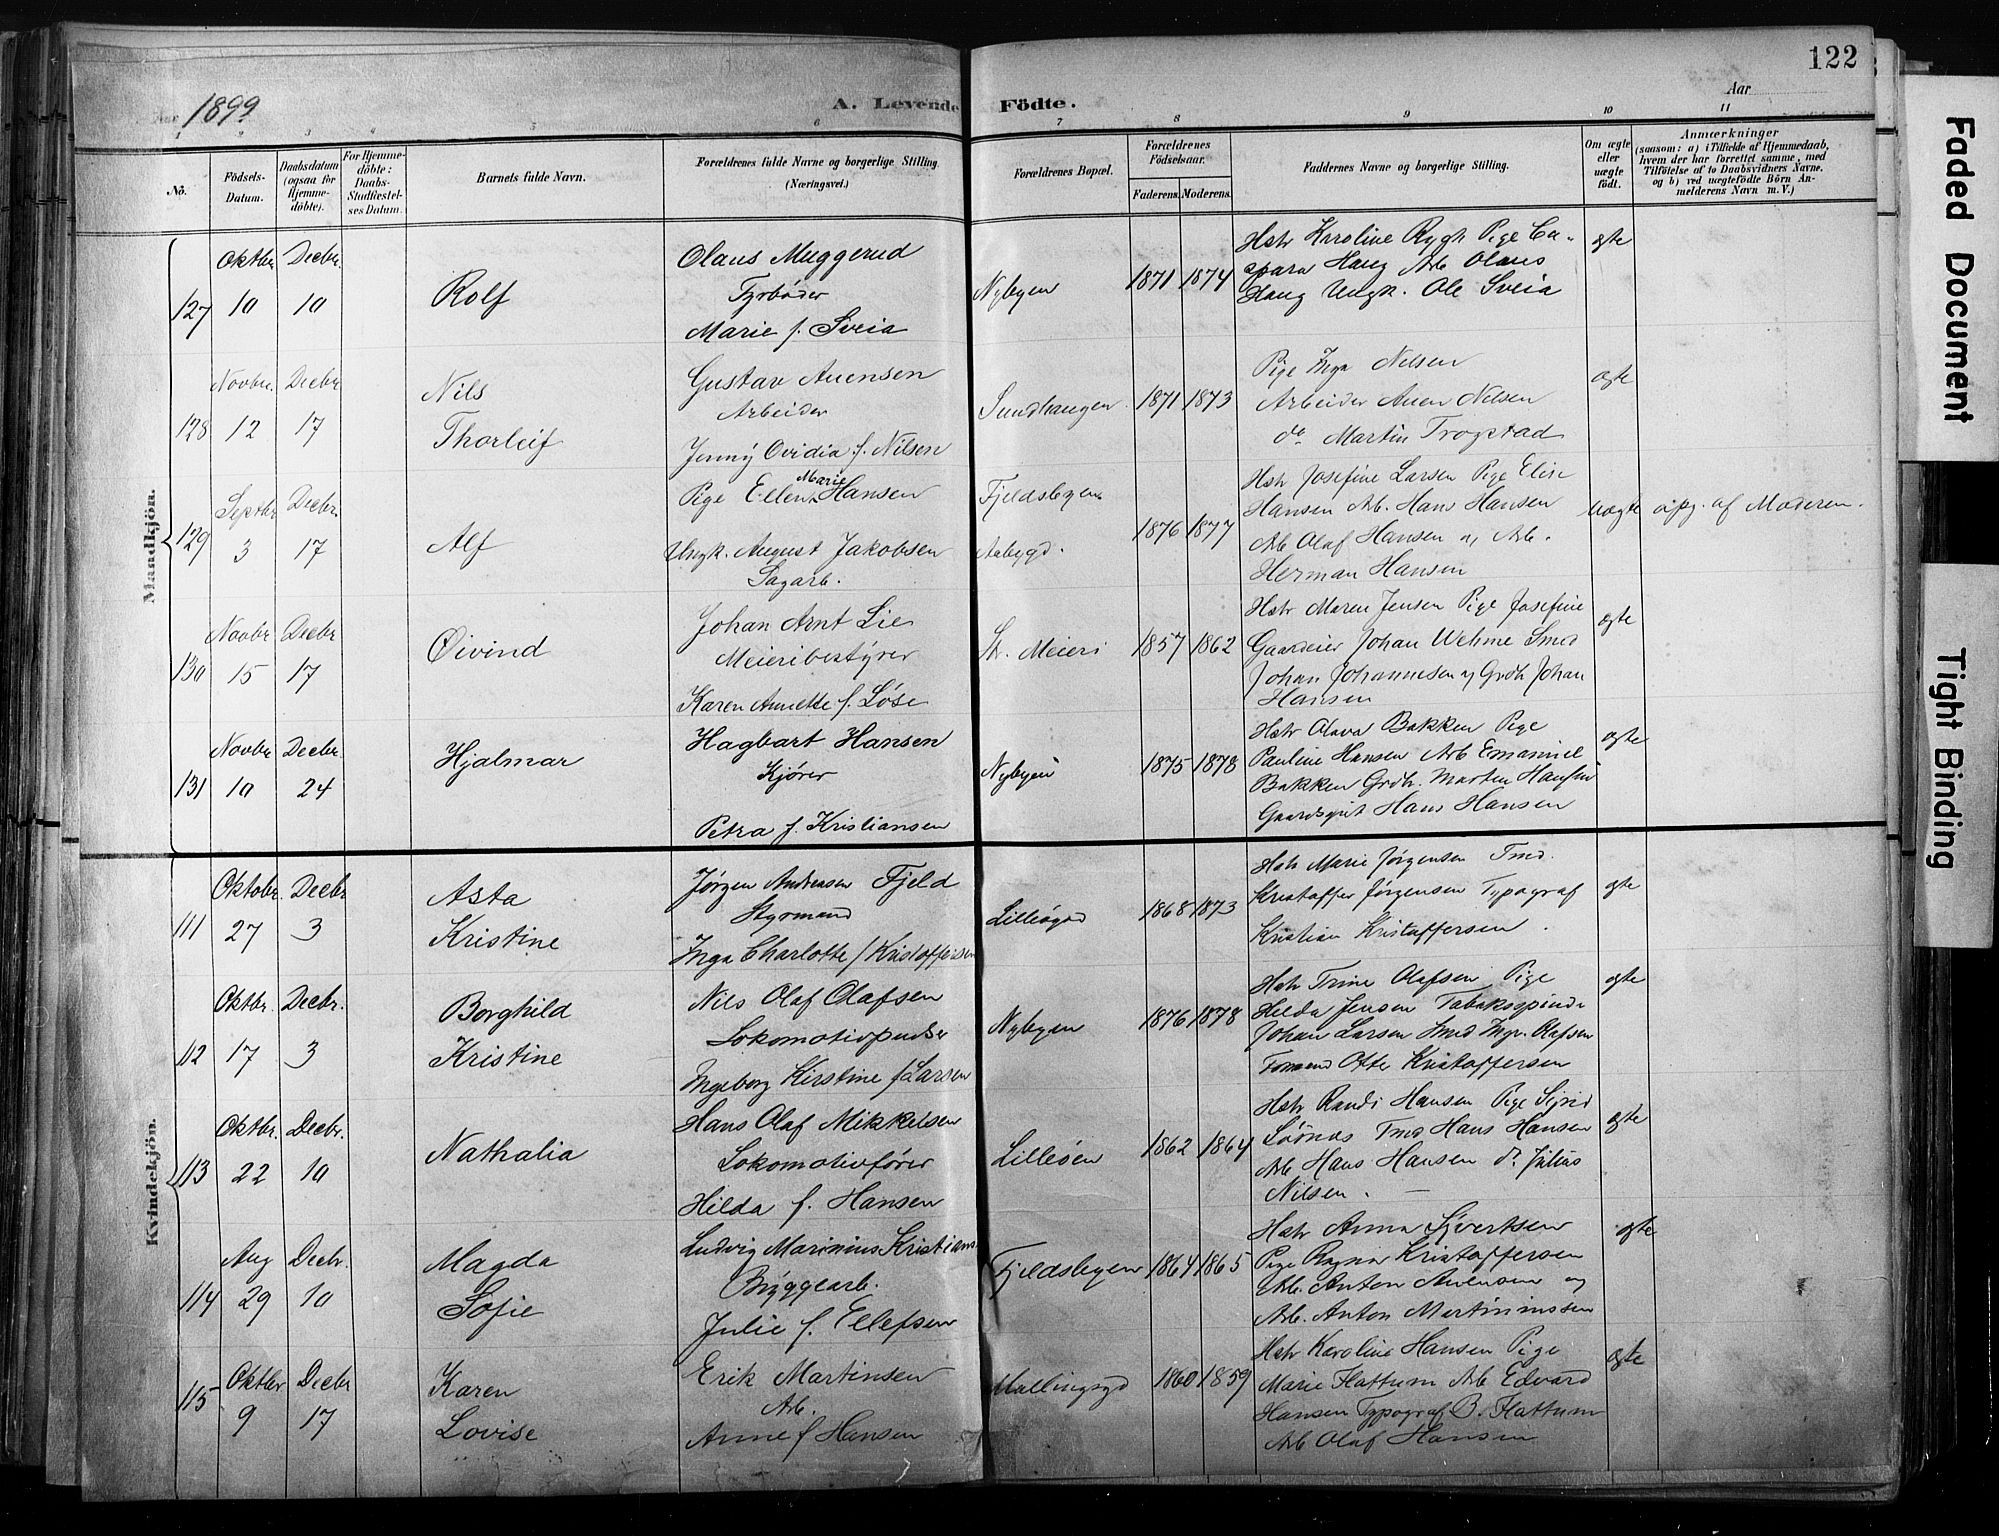 122
Aar 1899
A. Levende Födte.
Aar
1 2 3 4 5 6 7 8 9 10 11
No.
Födsels-Datum.
Daabsdatum (ogsaa for Hjemme-döbte).
For Hjemme-döbte: Daabs-Stadfæstel-ses Datum.
Barnets fulde Navn.
Forældrenes fulde Navne og borgerlige Stilling. (Næringsvei.)
Forældrenes Bopæl.
Forældrenes Födselsaar.
Faderens. Moderens.
Faddernes Navne og borgerlige Stilling.
Om ægte eller uægte födt.
Anmærkninger
(saasom: a) i Tilfælde af Hjemmedaab, hvem der har forrettet samme, med Tilföielse af to Daabsvidners Navne, og b) ved uægtefödte Börn Anmelderens Navn m. V.)
Mandkjön.
127 Oktbr. 10 Decbr. 10
Rolf
Olaus Muggerud
Fyrbøder
Marie f. Sveia
Nybyen
1871 1874
Hstr Karoline Rygh Pige Ca-
spara Haug Arb Olaus
Haug Ungk. Ole Sveia
ægte
128 Novbr. 12 Decbr 17
Nils
Thorleif
Gustav Auensen
Arbeider
Jenny Ovidia f. Nilsen
Sundhaugen
1871 1873
Pige Inga Nilsen
Arbeider Auen Nilsen
do Martin Trogstad
ægte
129 Septbr 3 Decbr. 17
Alf
Pige Ellen Marie Hansen
Ungk. August Jakobsen
Sagarb.
Fjeldsbyen
Aabygd.
1876 1877
Hstr Josefine Larsen Pige Elise
Hansen Arb. Hans Hansen
Arb Olaf Hansen og Arb.
Herman Hansen
uægte
opg. af Moderen.
130 Novbr 15 Decbr 17
Øivind
Johan Arnt Lie
Meieribestyrer
Karen Annette f. Løse
Str. Meieri
1857 1862
Hstr Maren Jensen Pige Josefine
Gaardeier Johan Wehme Smed
Johan Johannesen og Grdbr Johan
Hansen
ægte
131 Novbr 10 Decbr. 24
Hjalmar
Hagbart Hansen
Kjører
Petra f. Kristiansen
Nybyen
1875 1878
Hstr Olava Bakken Pige
Pauline Hansen Arb Emanuel
Bakken Grdbr. Marten Hansen
Hans Hansen
ægte
Kvindekjön.
111 Oktobr. 27 Decbr 3
Asta
Kristine
Jørgen Andreasen Fjeld
Styrmand
Inga Charlotte f Kristoffersen
Lilleøgd
1868 1873
Hstr Marie Jørgensen Tmd.
Kristoffer Jørgensen Typograf
Kristian Kristoffersen.
ægte
112 Oktbr. 17 Decbr. 3
Borghild
Kristine
Nils Olaf Olafsen
Lokomotivpudser
Ingeborg Kirstine f Larsen
Nybyen
1876 1878
Hstr Trine Olafsen Pige
Hilda Jensen Tabaksspinder
Johan Larsen Smed Ingv. Olafsen
Tømmand Otter Kristoffersen
ægte
113 Oktbr. 22 Decbr. 10
Nathalia
Hans Olaf Mikkelsen
Lokomotivfører
Hilda f. Hansen
Lilleøen
1862 1864
Hstr Randi Hansen Pige Sigrid
Tmd Hans Hansen
Arb Hans Hansen do Julius
Nilsen.
ægte
114 Aug 29 Decbr. 10
Magda
Sofie
Ludvig Marinius Kristians.
Byggearb.
Julie f. Ellefsen
Fjeldsbyen
1864 1865
Hstr Anna Syvertsen
Pige Ragna Kristoffersen
Arb. Anton Auensen og
Arb. Anton Martiniussen
ægte
115 Oktbr 9 Decbr 17
Karen
Lovise
Erik Martinsen
Arb.
Anne f Hansen
Mallingsgd
1860 1859
Hstr Karoline Hansen Pige
Marie Flattum Arb Edvard
Hansen Typograf B. Flattum
Arb Olaf Hansen
ægte
Faded Document
Tight Binding